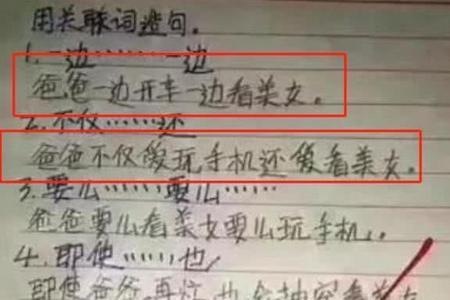 用关联词造句。
1.一边………一边
爸爸一边开车一边看美女。
2.不仅……还
爸爸不仅爱玩手机还爱看美女。
3.要么……要么……
爸爸要么看美女要么玩手机。
4.即使……也
即使爸爸再忙也会抽空看美女